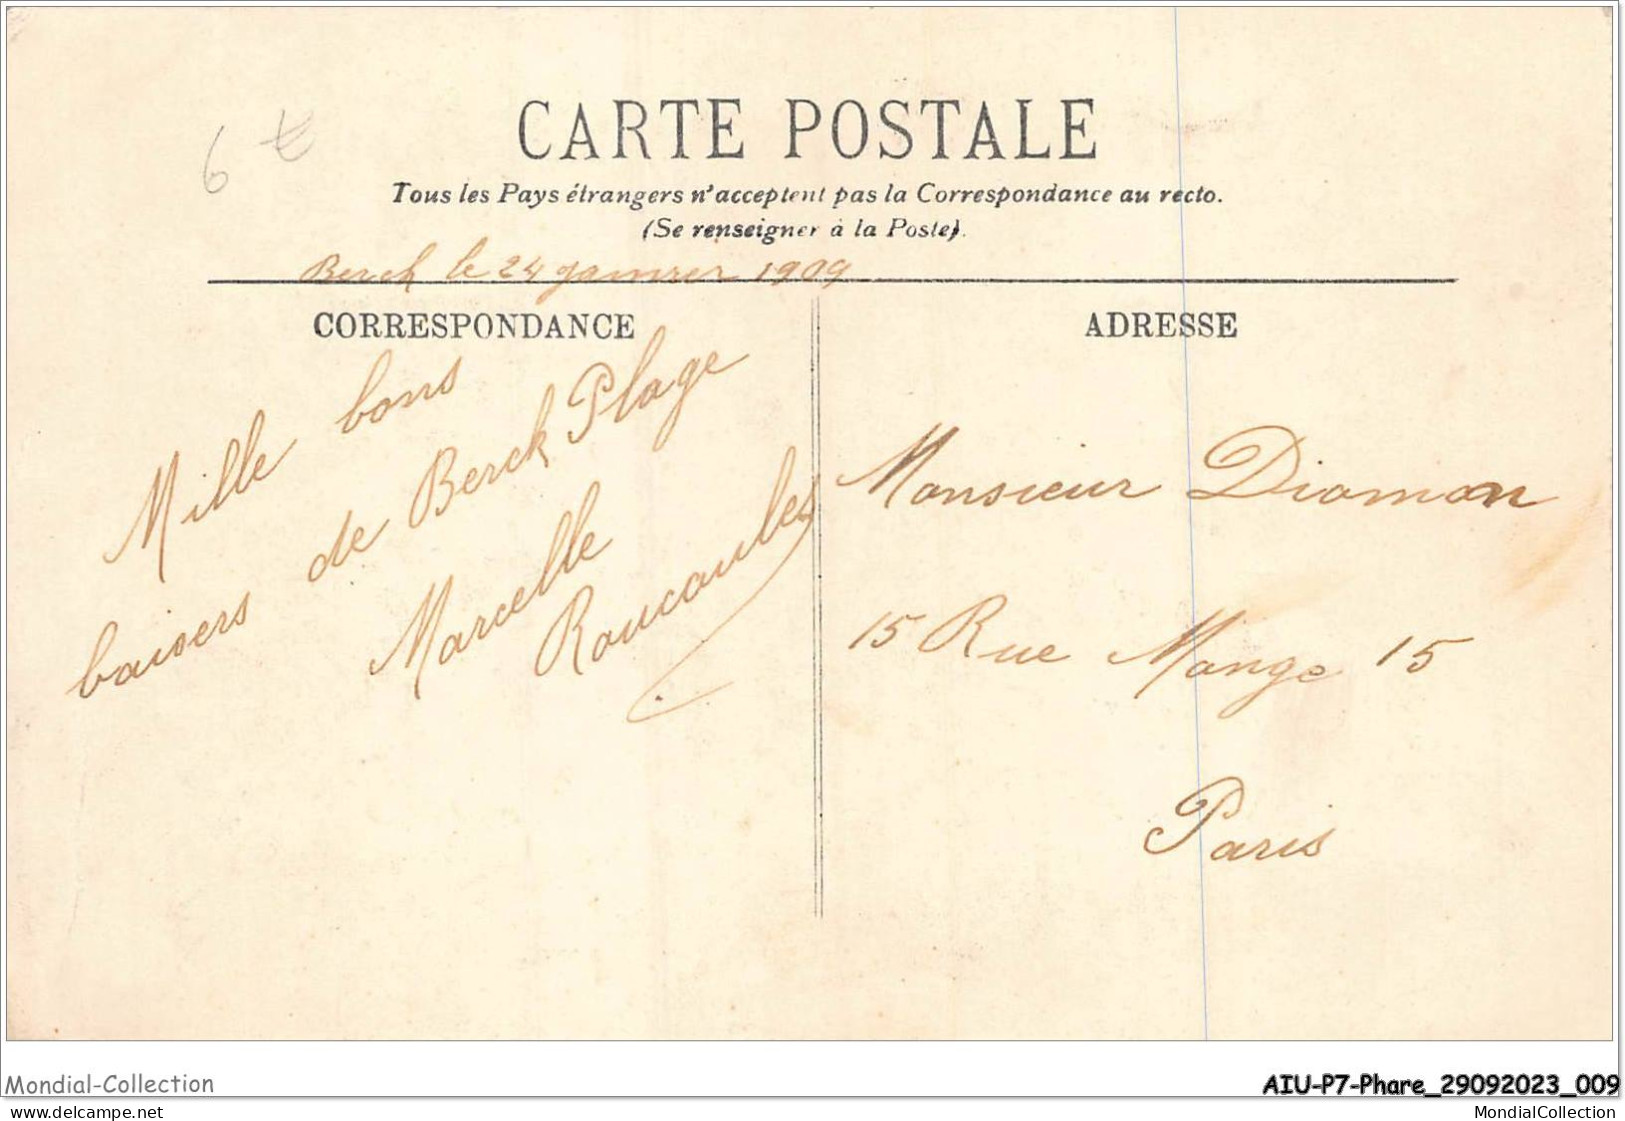 6 €
CARTE POSTALE
Tous les Pays étrangers n'acceptent pas la Correspondance au recto.
(Se renseigner à la Poste).
Berck le 24 janvier 1909
CORRESPONDANCE
Mille bons
baisers de Berck Plage
Marcelle
Roucaules
ADRESSE
Monsieur Diamon
15 Rue Monge 15
Paris
Mondial-Collection
AIU-P7-Phare_29092023_009
delcampe.net
MondialCollection